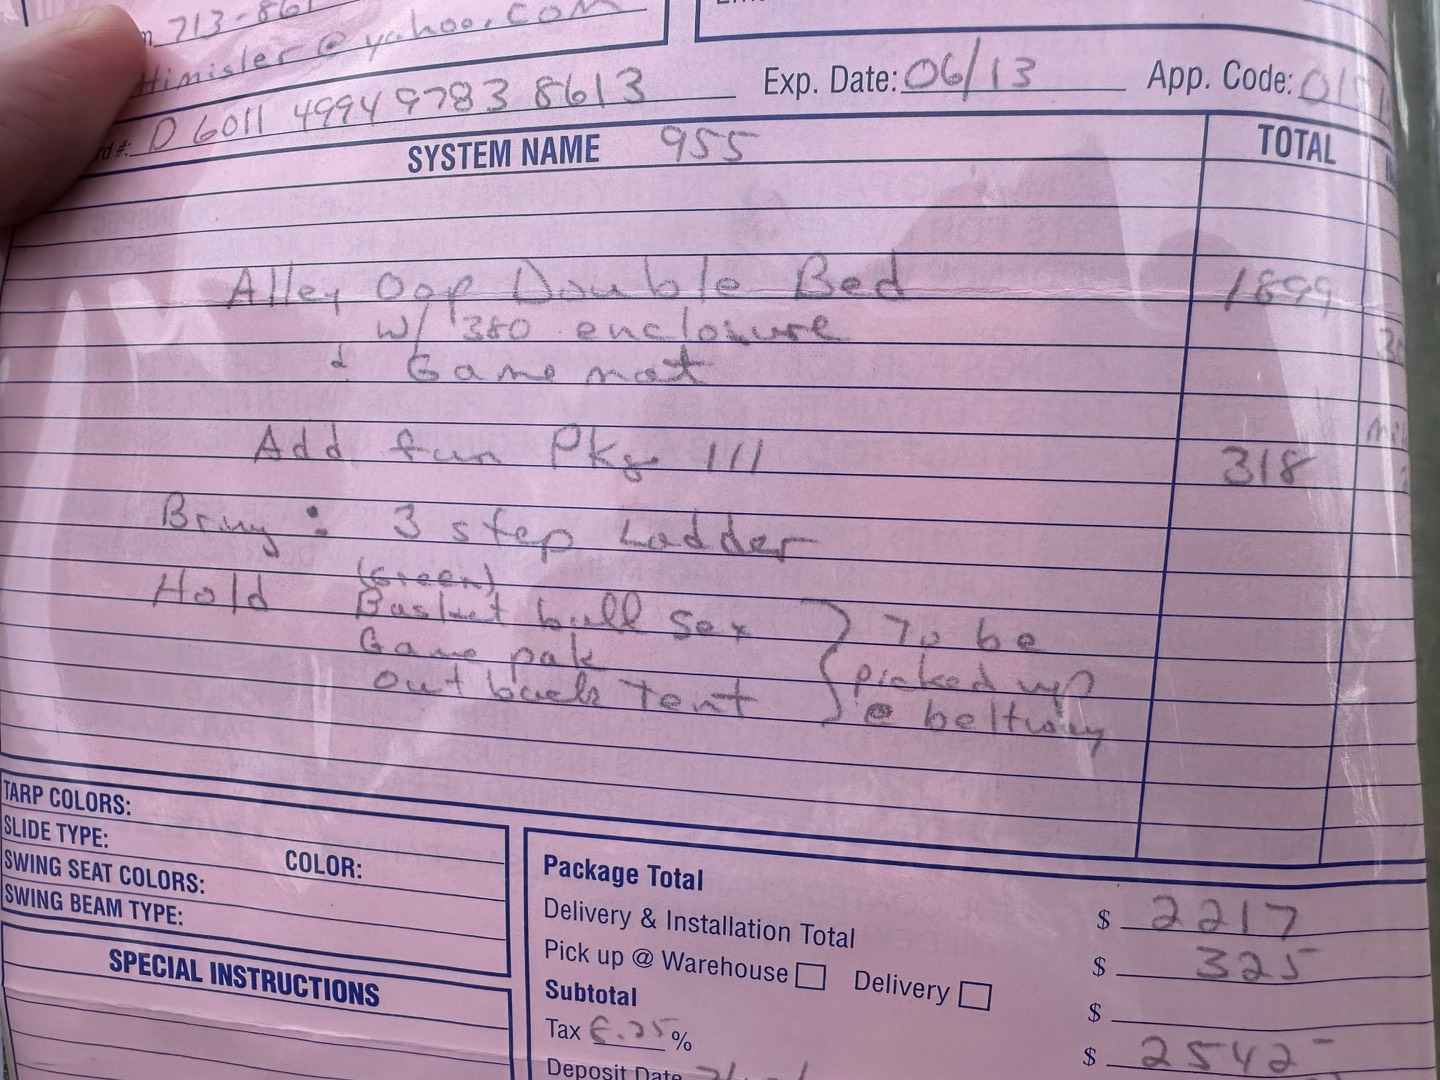 713-861
Himisler@yahoo.com
rd #: D 6011 4994 9783 8613 Exp. Date: 06/13 App. Code:
SYSTEM NAME 955 TOTAL
Alley Oop Double Bed 1899
w/ 380 enclosure
& Game mat
Add fun Pkg 111 318
Bring: 3 step Ladder
Hold (Green)
Basket ball set } To be
Game pak picked up
Out back Tent @ beltway
TARP COLORS:
SLIDE TYPE: COLOR:
SWING SEAT COLORS:
SWING BEAM TYPE:
SPECIAL INSTRUCTIONS
Package Total $ 2217
Delivery & Installation Total $ 325
Pick up @ Warehouse Delivery $
Subtotal $ 2542-
Tax 6.25%
Deposit Date